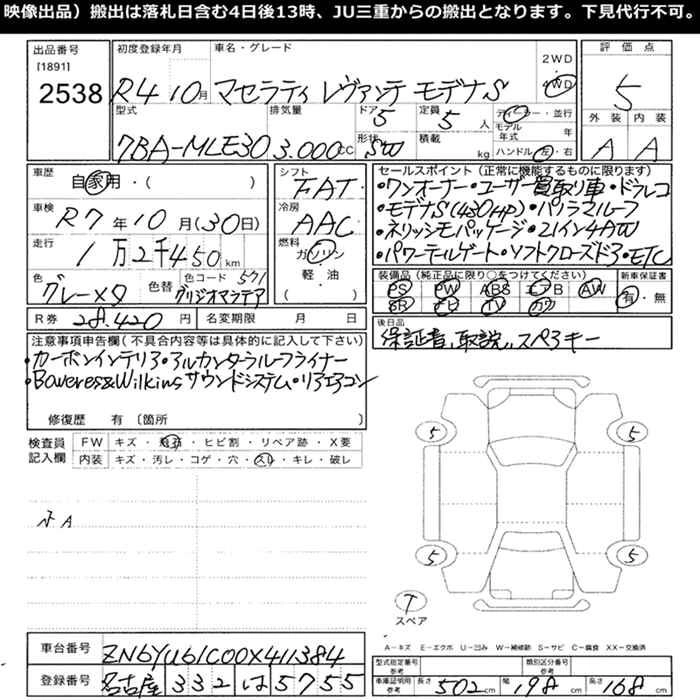 映像出品）搬出は落札日含む4日後13時、JU三重からの搬出となります。下見代行不可。
出品番号
[1891]
2538
初度登録年月
R4 10月
車名・グレード
マセラティ レヴァンテ モデナS
2WD
4WD
評価点
5
外装 内装
A A
型式
7BA-MLE30
排気量
3.000CC
ドア
5
形状
SW
定員
5人
積載
kg
ディーラー・並行
モデル年式 年
ハンドル 左・右
車歴
自家用・( )
車検
R7年10月(30日)
走行
1万2千450km
色
グレーメタ
色替
色コード 571
グリジオマラテア
R券
28.420円
名変期限 月 日
シフト
FAT
冷房
AAC
燃料
ガソリン
軽・油
( )
セールスポイント（正常に機能するものに限ります）
・ワンオーナー・ユーザー買取り車・ドラレコ
・モデナS(430HP)・パノラマルーフ
・ネリッシモパッケージ・21インチAW
・パワーテールゲート・ソフトクローズドア・ETC
装備品（純正品に限り○をつけてください）
PS PW ABS エアB AW
SR ナビ TV カワ
新車保証書
有・無
後日品
保証書、取説、スペアキー
注意事項申告欄(不具合内容等は具体的に記入して下さい)
・カーボンインテリア・アルカンターラルーフライナー
・Boweres&Wilkinsサウンドシステム・リアエアコン
修復歴 有〔箇所 〕
検査員記入欄
FW キズ・飛石・ヒビ割・リペア跡・X要
内装 キズ・汚レ・コゲ・穴・スレ・キレ・破レ
5 5
5 5
T
スペア
A－キズ E－エクボ U－凹み W－補修跡 S－サビ C－腐食 XX－交換済
車台番号
ZN6YU61C00X411384
登録番号
名古屋 332 は 5755
型式指定番号
参考
類別区分番号
参考
車庫証明用
参考
長さ 502cm 幅 198cm 高さ 168cm